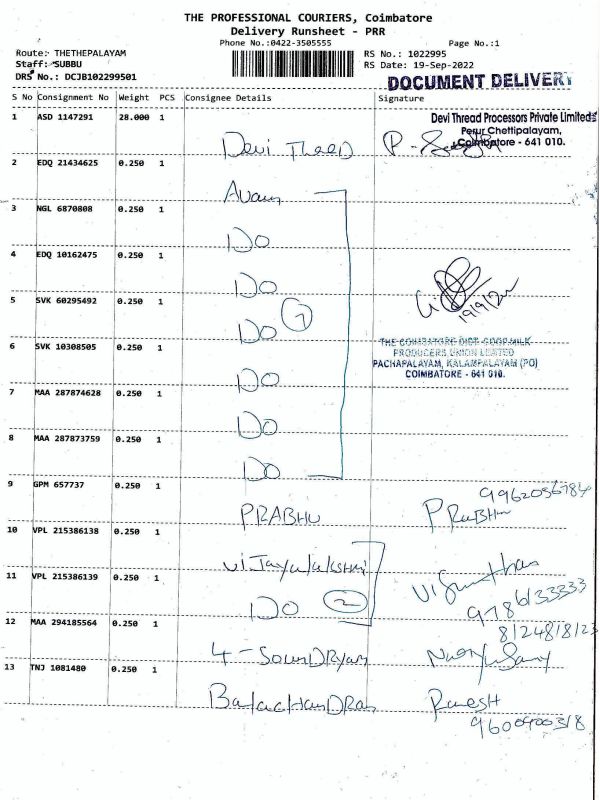 THE PROFESSIONAL COURIERS, Coimbatore
Delivery Runsheet - PRR
Phone No.:0422-3505555 Page No.:1
Route: THETHEPALAYAM RS No.: 1022995
Staff: SUBBU RS Date: 19-Sep-2022
DRS No.: DCJB102299501 DOCUMENT DELIVERY
S No Consignment No Weight PCS Consignee Details Signature
1 ASD 1147291 28.000 1 Devi Threed
Devi Thread Processors Private Limited
Perur Chettipalayam,
Coimbatore - 641 010.
2 EDQ 21434625 0.250 1
3 NGL 6870808 0.250 1 DO
4 EDQ 10162475 0.250 1 DO
19/9/22
5 SVK 60295492 0.250 1 DO 7
6 SVK 10308505 0.250 1 DO
THE COIMBATORE DIST. COOP. MILK
PRODUCERS UNION LIMITED
PACHAPALAYAM, KALAMPALAYAM (PO)
COIMBATORE - 641 010.
7 MAA 287874628 0.250 1 DO
8 MAA 287873759 0.250 1 DO
9 GPM 657737 0.250 1 PRABHU PRABHU
10 VPL 215386138 0.250 1 VIJAYALAKSHMI
11 VPL 215386139 0.250 1 DO 2
9786133333
12 MAA 294185564 0.250 1 4-SOUNDRYAN
13 TNJ 1081480 0.250 1 BALACHANDRAN RAMESH